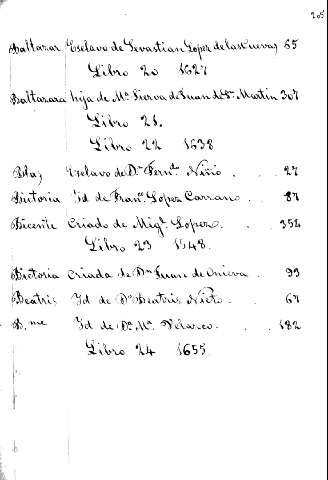 205
Baltazar Esclavo de Sevastian Lopez de las Cuevas 65
Libro 20 1627
Baltazara hija de Ma. Sierva de Juan de Sn. Martin 307
Libro 21.
Libro 22 1638
Blas Esclavo de Dn. Ferndo. Niño . 27
Victoria Id de Franco. Lopez Carrano . . 87
Bicente Criado de Migl. Lopez . . 352
Libro 23 1648.
Victoria Criada de Dn. Juan de Onieva . 99
Beatris Id de Da. Beatris Nieto . . 67
B.me Id de Da. Ma. Velasco . . 182
Libro 24 1655.